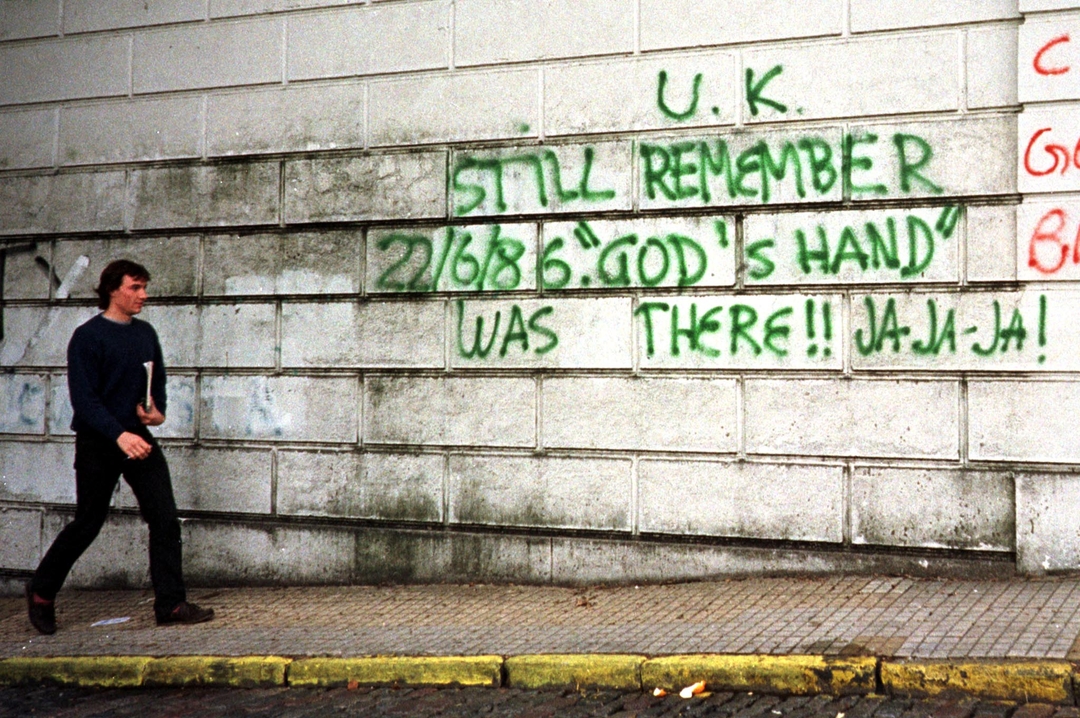 U. K.
STILL REMEMBER
22/6/86."GOD'S HAND"
WAS THERE!! JA-JA-JA!